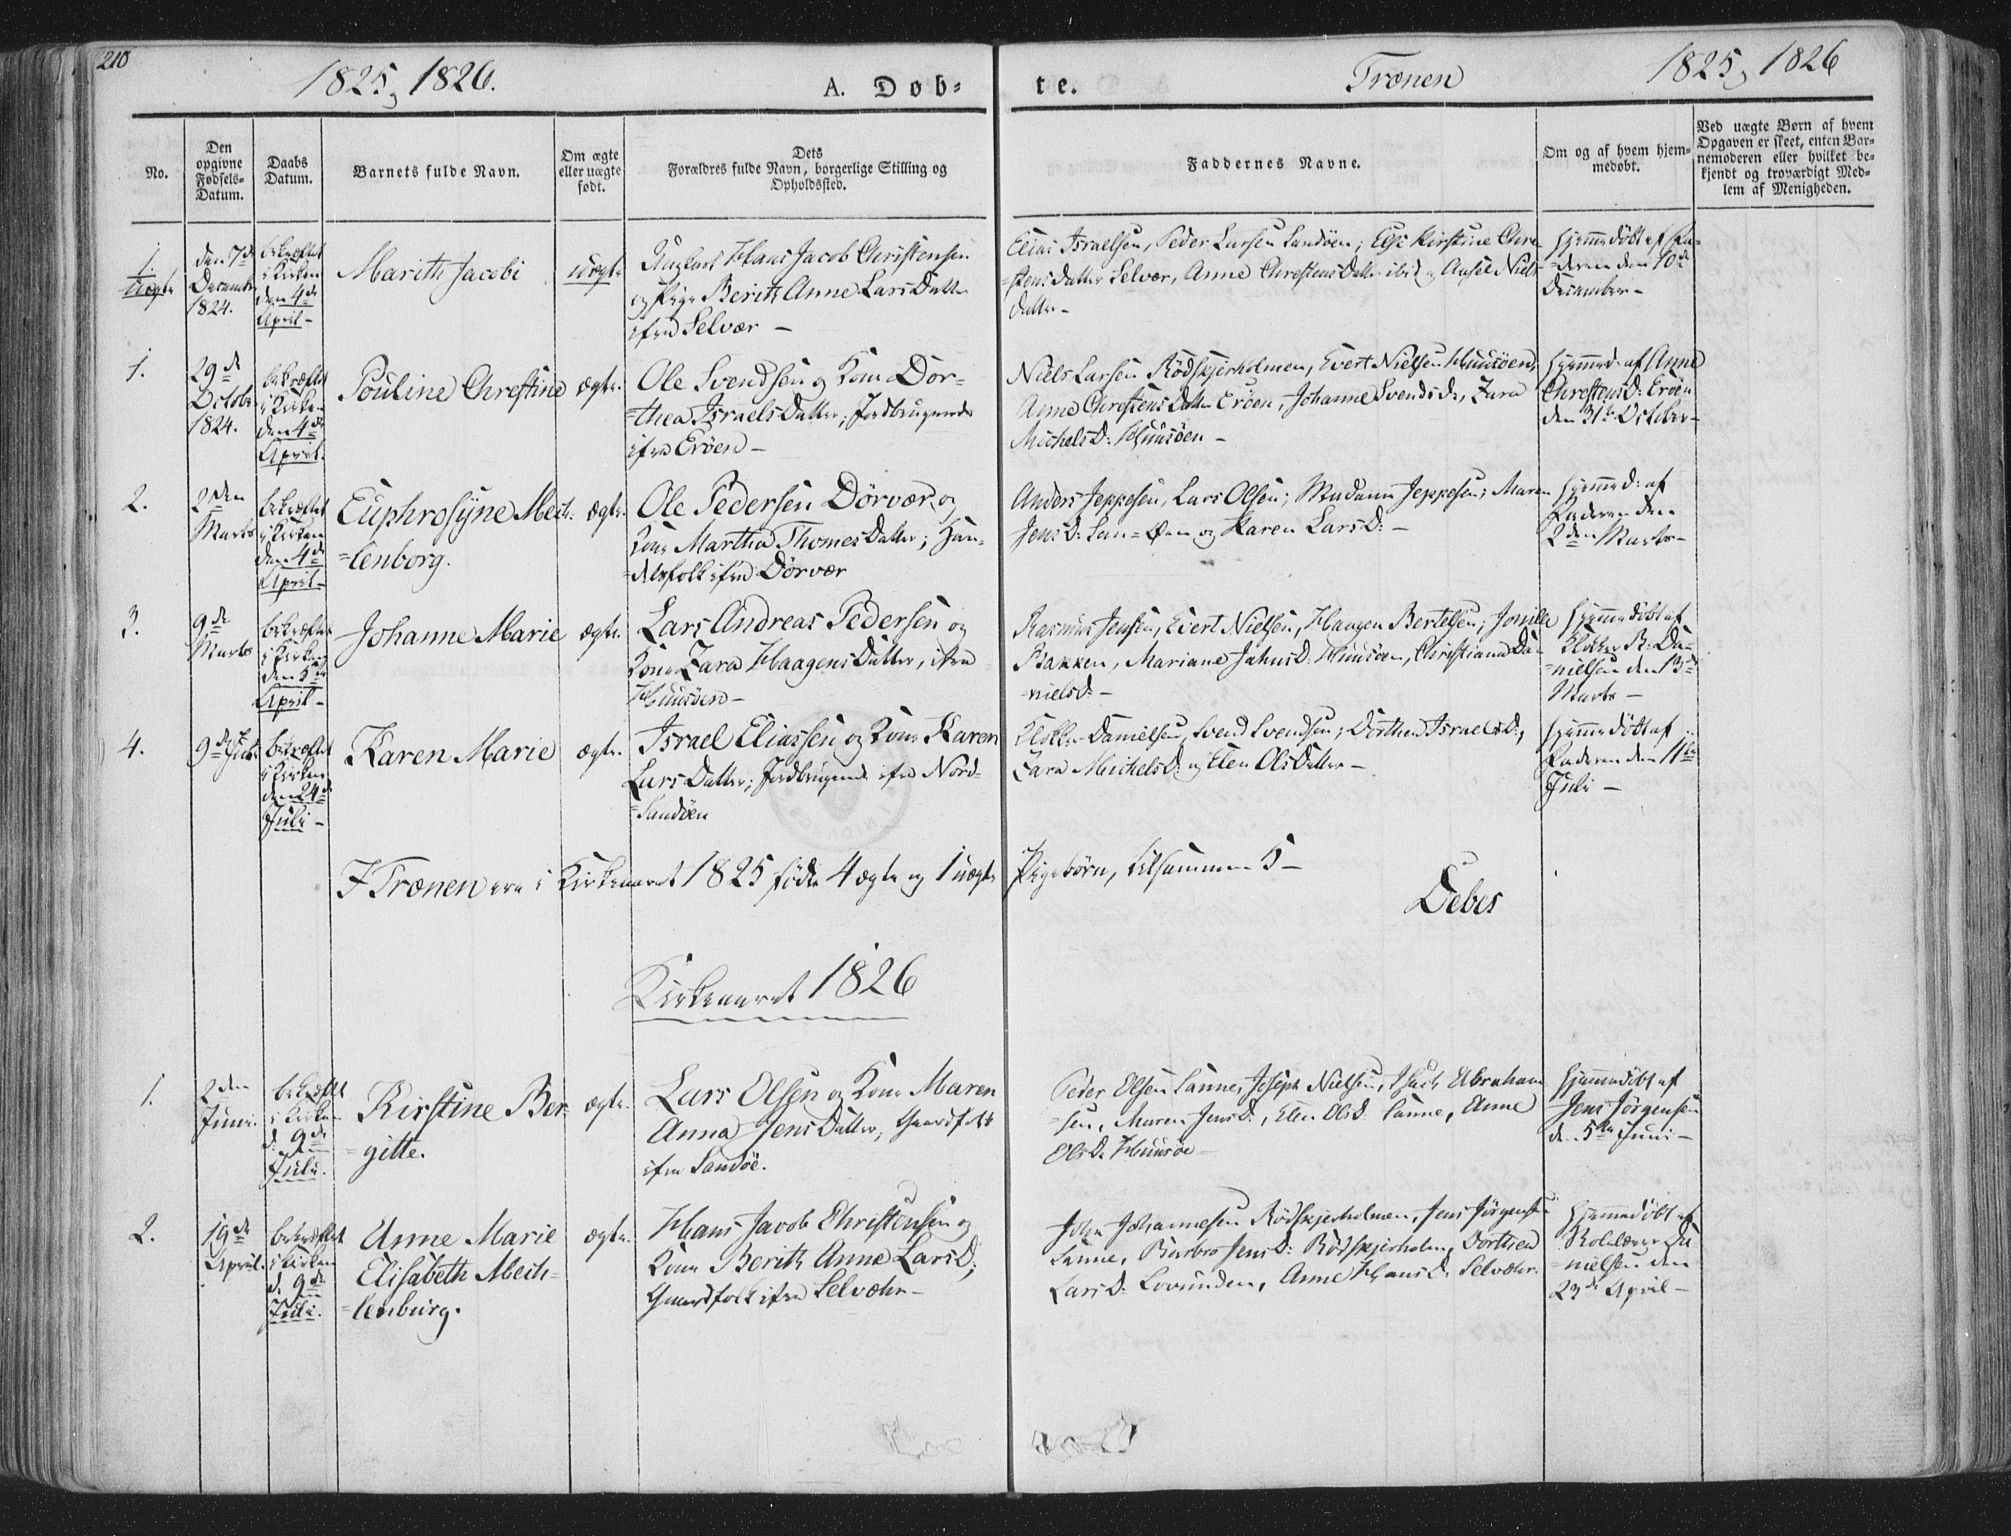 210
1825, 1826.
A. Døb-
te.
Trænen
1825, 1826
No.
Den
opgivne
Fødsels-
Datum.
Daabs
Datum.
Barnets fulde Navn.
Om ægte
eller uægte
født.
Dets
Forældres fulde Navn, borgerlige Stilling og
Opholdssted.
Faddernes Navne.
Om og af hvem hjem-
medøbt.
Ved uægte Børn af hvem
Opgaven er skeet, enten Bar-
nemoderen eller hvilket be-
kjendt og troværdigt Med-
lem af Menigheden.
1.
uægte
den 7de
December
1824.
bekræftet
i Kirken
den 4de
April-
Marith Jacobi
uægte
Ungkarl Hans Jacob Christensen
og Pige Berith Anne Lars Datter
ifra Selvær -
Elias Israelsen, Peder Larsen Sandøen; Else Kirstine Chre-
stens Datter Selvær, Anne Chrestens Datter ibid og Niels
Datter-
hjemmedöbt af Fa-
deren den 10de
December-
1.
29de
October
1824.
bekræftet
i Kirken
den 4de
April.
Pouline Chrestine
ægte.
Ole Svendsen og Kone Dor-
=thea Israels Datter; Jordbrugende
ifra Eröen-
Niels Larsen Rödskjerholmen, Evert Nielsen Huusöen,
Anne Chrestens Datter Eröen, Johanne Svends D., Zara
Michels D: Huusöen -
hjemmed: af Anne
Chrestens D: Eröen
den 31te October-
2.
2den
Marts
bekræftet
i Kirken
den 4de
April-
Euphrosyne Mech-
=lenborg.
ægte.
Ole Pedersen Dörvær og
Kone Martha Thomes Datter; Han-
=delsfolk ifra Dörvær
Anders Jeppesen, Lars Olsen; Madame Jeppesen, Maren
Jens D: og Karen Lars D: -
hjemmed: af
Faderen den
2den Marts-
3.
9de
Marts
bekræftet
i Kirken
den 5te
April-
Johanne Marie
ægte.
Lars Andreas Pedersen og
Kone Zara Haagens Datter, ifra
Huusöen-
Rasmus Jensen, Evert Nielsen, Haagen Bertelsen; Jonille
Bakken, Mariane Jahns D: Huusöen, Christiana Da-
=niels D: -
hjemmedöbt af
Klokker R: Da-
=nielsen den 13de
Marts -
4.
9de Juli
bekræftet
i Kirken
den 24de
Juli -
Karen Marie
ægte.
Israel Eliassen og Kone Karen
Lars Datter; Jordbrugende ifra Nord-
=Sandöen
Klokker Danielsen, Svend Svendsen; Dorthea Israels D:,
Zara Michels D: og Elen Ols Datter -
hjemmedöbt af
Faderen den 11te
Juli -
I Trænen ere i Kirkeaaret 1825 födte 4 ægte og 1 uægte Pigebörn, tilsammen 5 -
Debes
Kirkeaaret 1826
1.
2den
Juni.
bekræftet
i Kirken
d. 9de
Juli.
Kirstine Ber-
=gitte.
ægte.
Lars Olsen og Kone Maren
Anna Jens Datter, Gaardfolk
ifra Sandöe.
Peder Olsen Sanne, Joseph Nielsen, Isach Abraham-
=sen, Maren Jens D:, Elen Ols D: Sanne, Anne
Ols D: Huusöe -
hjemmedöbt af
Jens Jörgensen
d. 5te Juni -
2.
19de
April.
bekræftet
i Kirken
d. 9de
Juli.
Anne Marie
Elisabeth Mech-
=lenburg.
ægte.
Hans Jacob Christensen og
Kone Berith Anne Lars D:
Gaardfolk ifra Selvæhr -
John Johannesen Rödskjerholmen, Jens Jörgensen
Sanne, Barbro Jens D: Rödskjerholm, Dorthea
Lars D: Lovunden, Anne Hans D: Selvæhr.
hjemmedöbt af
Skolelærer Da-
=nielsen den
23de April -